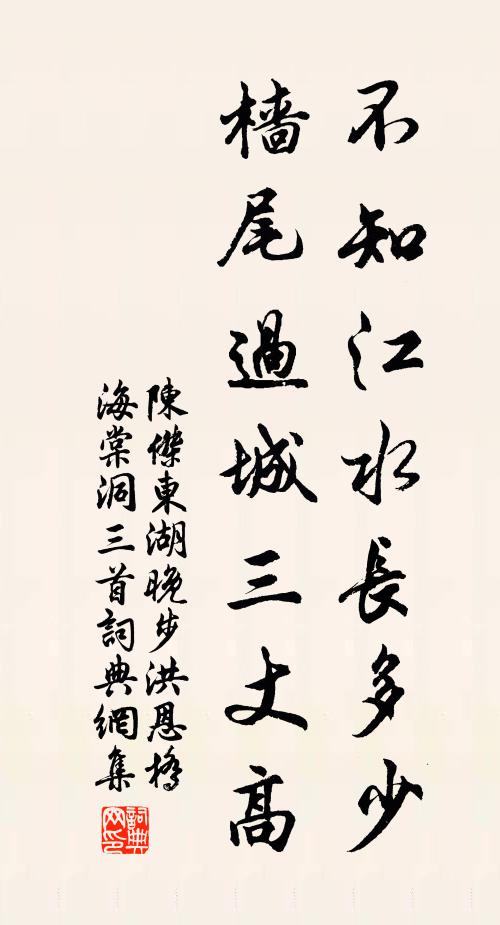 不知江水長多少
檣尾過城三丈高
陳傑東湖晚步洪恩橋
海棠洞三首詞典網集
詞典網印